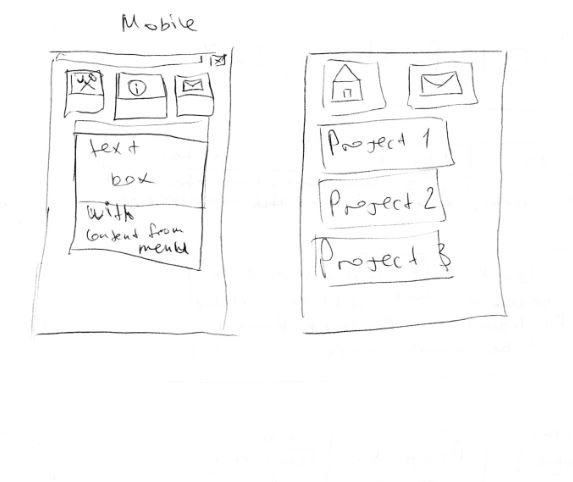 Mobile
text
box
with
content from
menu
Project 1
Project 2
Project 3